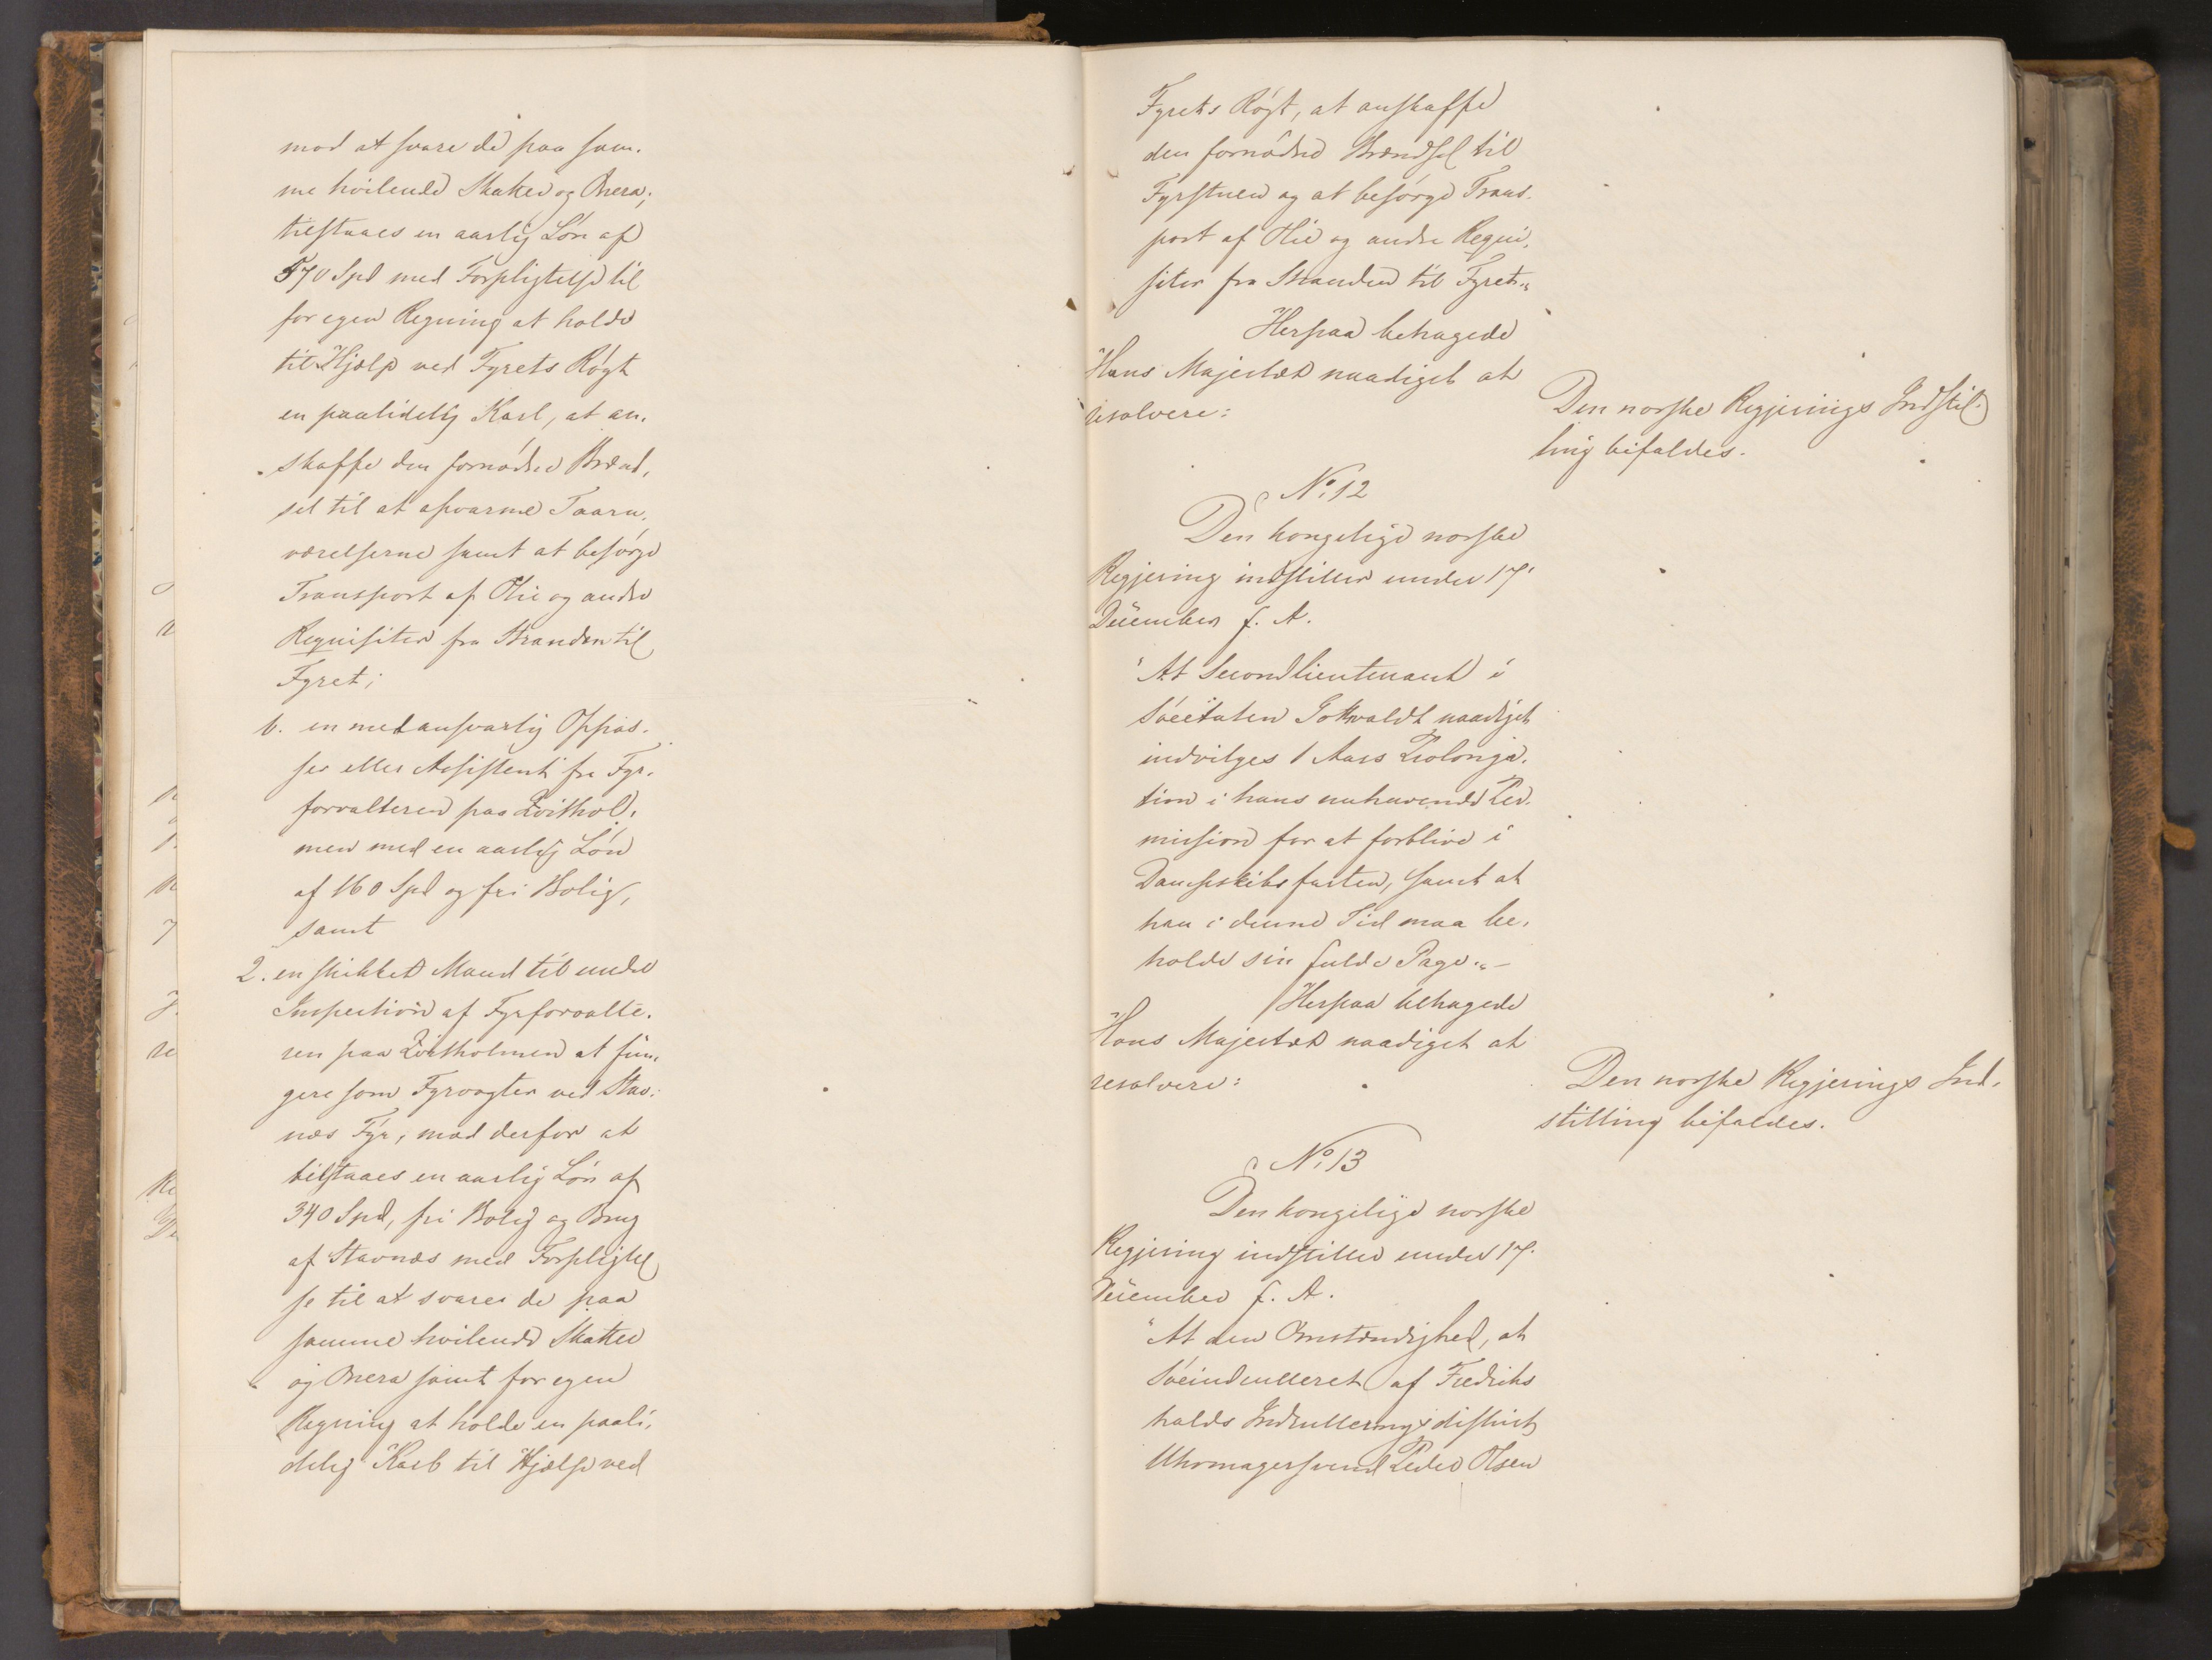 mod at svare de paa sam-
me hvilende Skatter og Onera,
tilstaaes en aarlig Løn af
570 Spd med Forpligtelse til
for egen Regning at holde
til Hjælp ved Fyrets Røgt
en paalidelig Karl, at an-
skaffe den fornødne Brænd-
sel til at opvarme Taarn-
værelserne samt at besørge
Transport af Olie og andre
Requisiter fra Stranden til
Fyret;
b. en medansvarlig Oppas-
ser eller Assistent for Fyr-
forvalteren paa Qvithol-
men med en aarlig Løn
af 160 Spd og fri Bolig,
samt
2. en skikket Mand til under
Inspection af Fyrforvalte-
ren paa Qvitholmen at fun-
gere som Fyrvogter ved Stav-
næs Fyr, mod derfor at
tilstaaes en aarlig Løn af
340 Spd, fri Bolig og Brug
af Stavnæs med Forpligtel
se til at svare de paa
samme hvilende Skatter
og Onera samt for egen
Regning at holde en paali-
delig Karl til Hjælp ved
Fyrets Røgt, at anskaffe
den fornødne Brændsel til
Fyrstuen og at besørge Trans-
port af Olie og andre Requi-
siter fra Stranden til Fyret."
Herpaa behagede
Hans Majestæt naadigst at
resolvere:
Den norske Regjerings Indstil-
ling bifaldes.
No. 12
Den kongelige norske
Regjering indstiller under 17'
December f. A.
"At Secondlieutenant i
Søeetaten Gottwaldt naadigst
indvilges 1 Aars Prolonga-
tion i hans nuhavende Per-
mission for at forblive i
Dampskibsfarten, samt at
han i denne Tid maa be-
holde sin fulde Gage."-
Herpaa behagede
Hans Majestæt naadigst at
resolvere:
Den norske Regjerings Ind-
stilling bifaldes.
No. 13
Den kongelige norske
Regjering indstiller under 17'
December f. A.
"At den Omstændighed, at
Søeindrulleret af Fredriks
halds Indrulleringsdistrict
Uhrmagersvend Peder Olsen